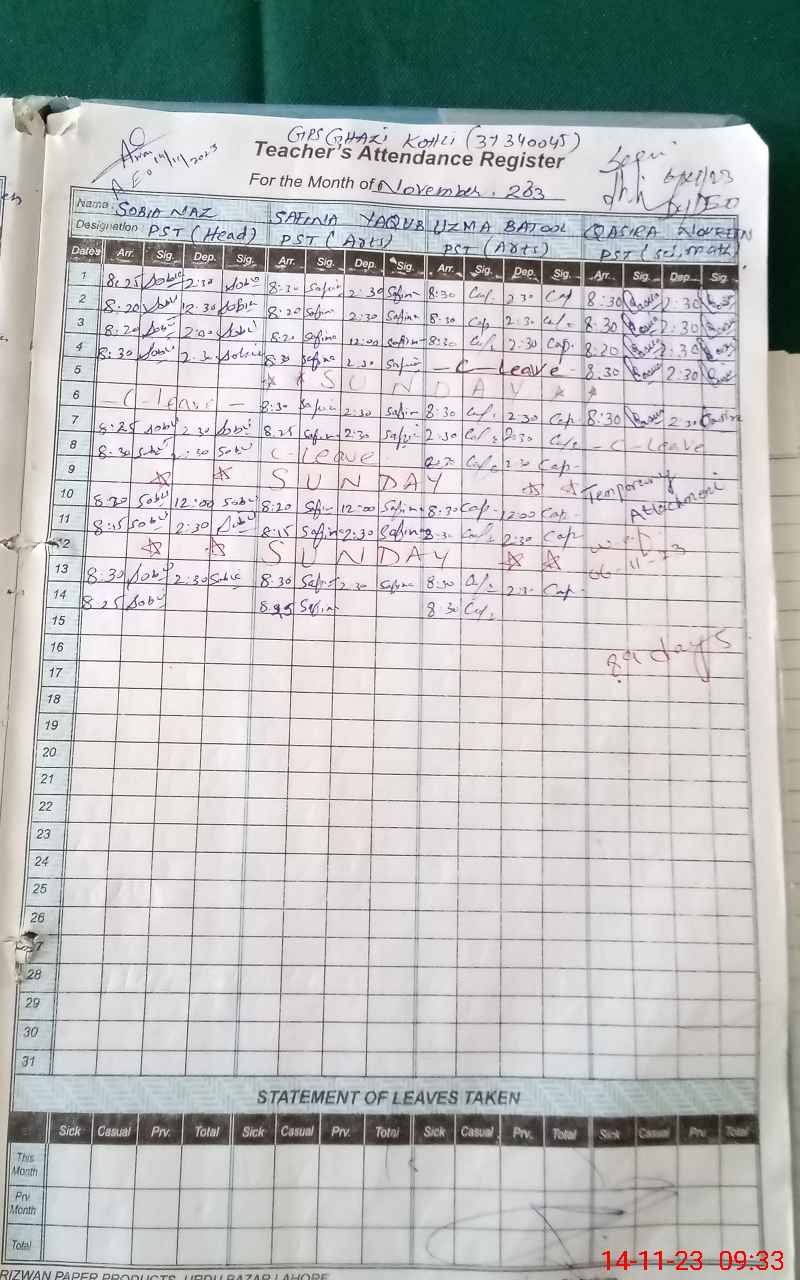 GPS GHAZI KOHLI (37340045)
Teacher's Attendance Register
For the Month of November. 203
Name SOBIA NAZ SAFINA YAQUB UZMA BATOOL QASIRA NOUREEN
Designation PST (Head) PST (Arts) PST (Arts) PST (sci, math)
Dates Arr. Sig. Dep. Sig. Arr. Sig. Dep. Sig. Arr. Sig. Dep. Sig. Arr. Sig. Dep. Sig.
1 8:25 Sobia 2:30 Sobia 8:30 Safina 2:30 Safina 8:30 2:30 8:30 2:30
2 8:20 Sobi 12:30 Sobia 8:20 Safina 2:30 Safina 8:30 2:30 8:30 2:30
3 8:20 Sobi 2:00 Sobi 8:20 Safina 12:00 Safina 8:30 2:30 8:20 2:30
4 8:30 Sobi 2:30 Sobia 8:30 Safina 2:30 Safina - C - Leave 8:30 2:30
5 SUNDAY
6 - C - leave - 8:30 Safina 2:30 Safina 8:30 2:30 8:30 2:30
7 8:25 Sobi 2:30 Sobi 8:25 Safina 2:30 Safina 2:30 2:30 - C - Leave
8 8:30 Sobi 2:30 Sobi C - Leave 2:30
9 SUNDAY Temporary
10 8:20 Sobi 12:00 Sobi 8:20 Safina 12:00 Safina 8:30 12:00 Attachment
11 8:15 Sobi 2:30 Sobi 8:15 Safina 2:30 Safina 8:30 2:30 w.e.f.
12 SUNDAY 06-11-23
13 8:30 Sobi 2:30 Sobia 8:30 Safina 2:30 Safina 8:30 2:30
14 8:25 Sobi 8:25 Safina 8:30
15
16 89 days
17
18
19
20
21
22
23
24
25
26
27
28
29
30
31
STATEMENT OF LEAVES TAKEN
Sick Casual Prv. Total Sick Casual Prv. Total Sick Casual Prv. Total Sick Casual Prv. Total
This Month
Prv Month
Total
RIZWAN PAPER PRODUCTS, URDU BAZAR LAHORE
14-11-23 09:33